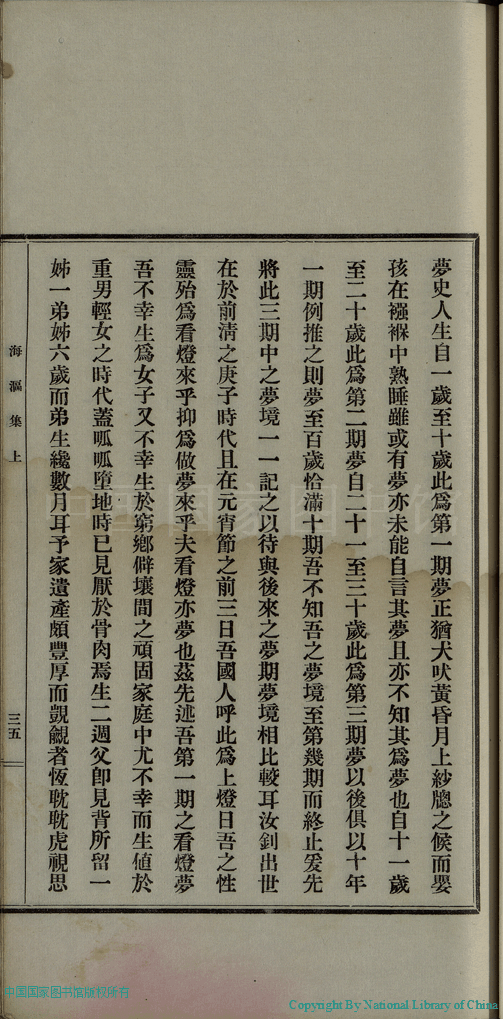 夢史人生自一歲至十歲此爲第一期夢正猶犬吠黃昏月上紗牕之候而嬰
孩在襁褓中熟睡雖或有夢亦未能自言其夢且亦不知其爲夢也自十一歲
至二十歲此爲第二期夢自二十一至三十歲此爲第三期夢以後俱以十年
一期例推之則夢至百歲恰滿十期吾不知吾之夢境至第幾期而終止爰先
將此三期中之夢境一一記之以待與後來之夢期夢境相比較耳汝釗出世
在於前淸之庚子時代且在元宵節之前三日吾國人呼此爲上燈日吾之性
靈殆爲看燈來乎抑爲做夢來乎夫看燈亦夢也茲先述吾第一期之看燈夢
吾不幸生爲女子又不幸生於窮鄉僻壤間之頑固家庭中尤不幸而生値於
重男輕女之時代蓋呱呱墮地時已見厭於骨肉焉生二週父卽見背所留一
姊一弟姊六歲而弟生纔數月耳予家遺產頗豐厚而覬覦者恆耽耽虎視思
海漚集上
三五
中国国家图书馆版权所有
Copyright By National Library of China